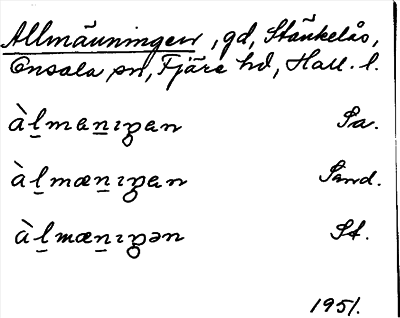 Allmänningen, gd, Stänkelås,
Onsala sn, Fjäre hd, Hall. l.
àl̲men̲ıŋen Sa.
àl̲mæn̲ıŋen Sand.
àl̲mæn̲ıŋən St.
1951.